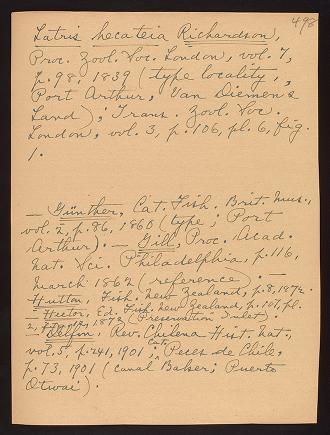 498
Latris hecateia Richardson,
Proc. Zool. Soc. London, vol. 7,
p. 98, 1839 (type locality,
Port Arthur, Van Diemens
Land), Trans. Zool. Soc.
London, vol. 3, p. 106, pl. 6, fig.
1.
— Günther, Cat. Fish. Brit. Mus.,
vol. 2, p. 86, 1860 (type; Port
Arthur). — Gill, Proc. Acad.
Nat. Sci. Philadelphia, p. 116,
March 1862 (reference). —
— Hutton, Fish. New Zealand, p. 8, 1872.
— Hector, Ed. Fish. New Zealand, p. 107, pl.
2, 1872 (Preservation Inlet).
— Delfin, Rev. Chilena Hist. Nat.,
vol. 5, p. 241, 1901; Cat. Peces de Chile,
p. 73, 1901 (canal Baker; Puerto
Otwai).